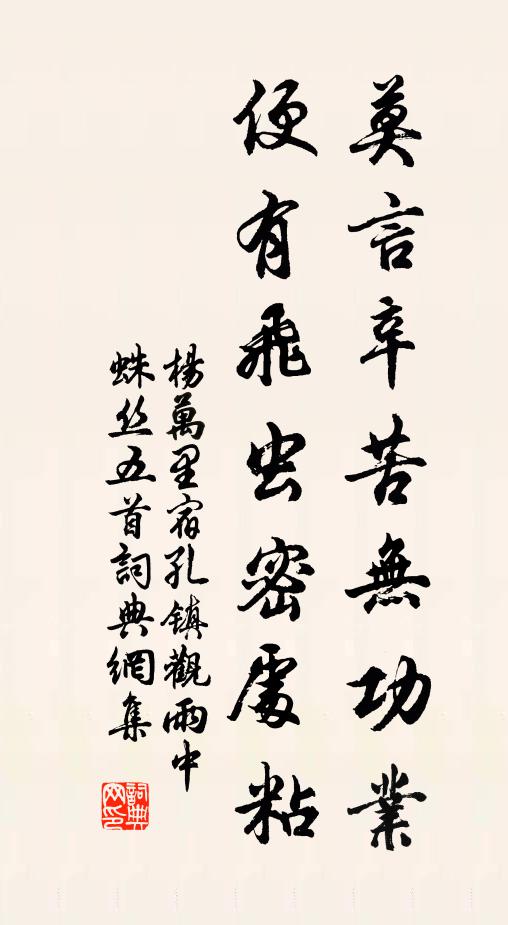 莫言辛苦無功業
便有飛虫密處粘
楊萬里宿孔镇觀雨中
蛛丝五首詞典網集
詞典網印